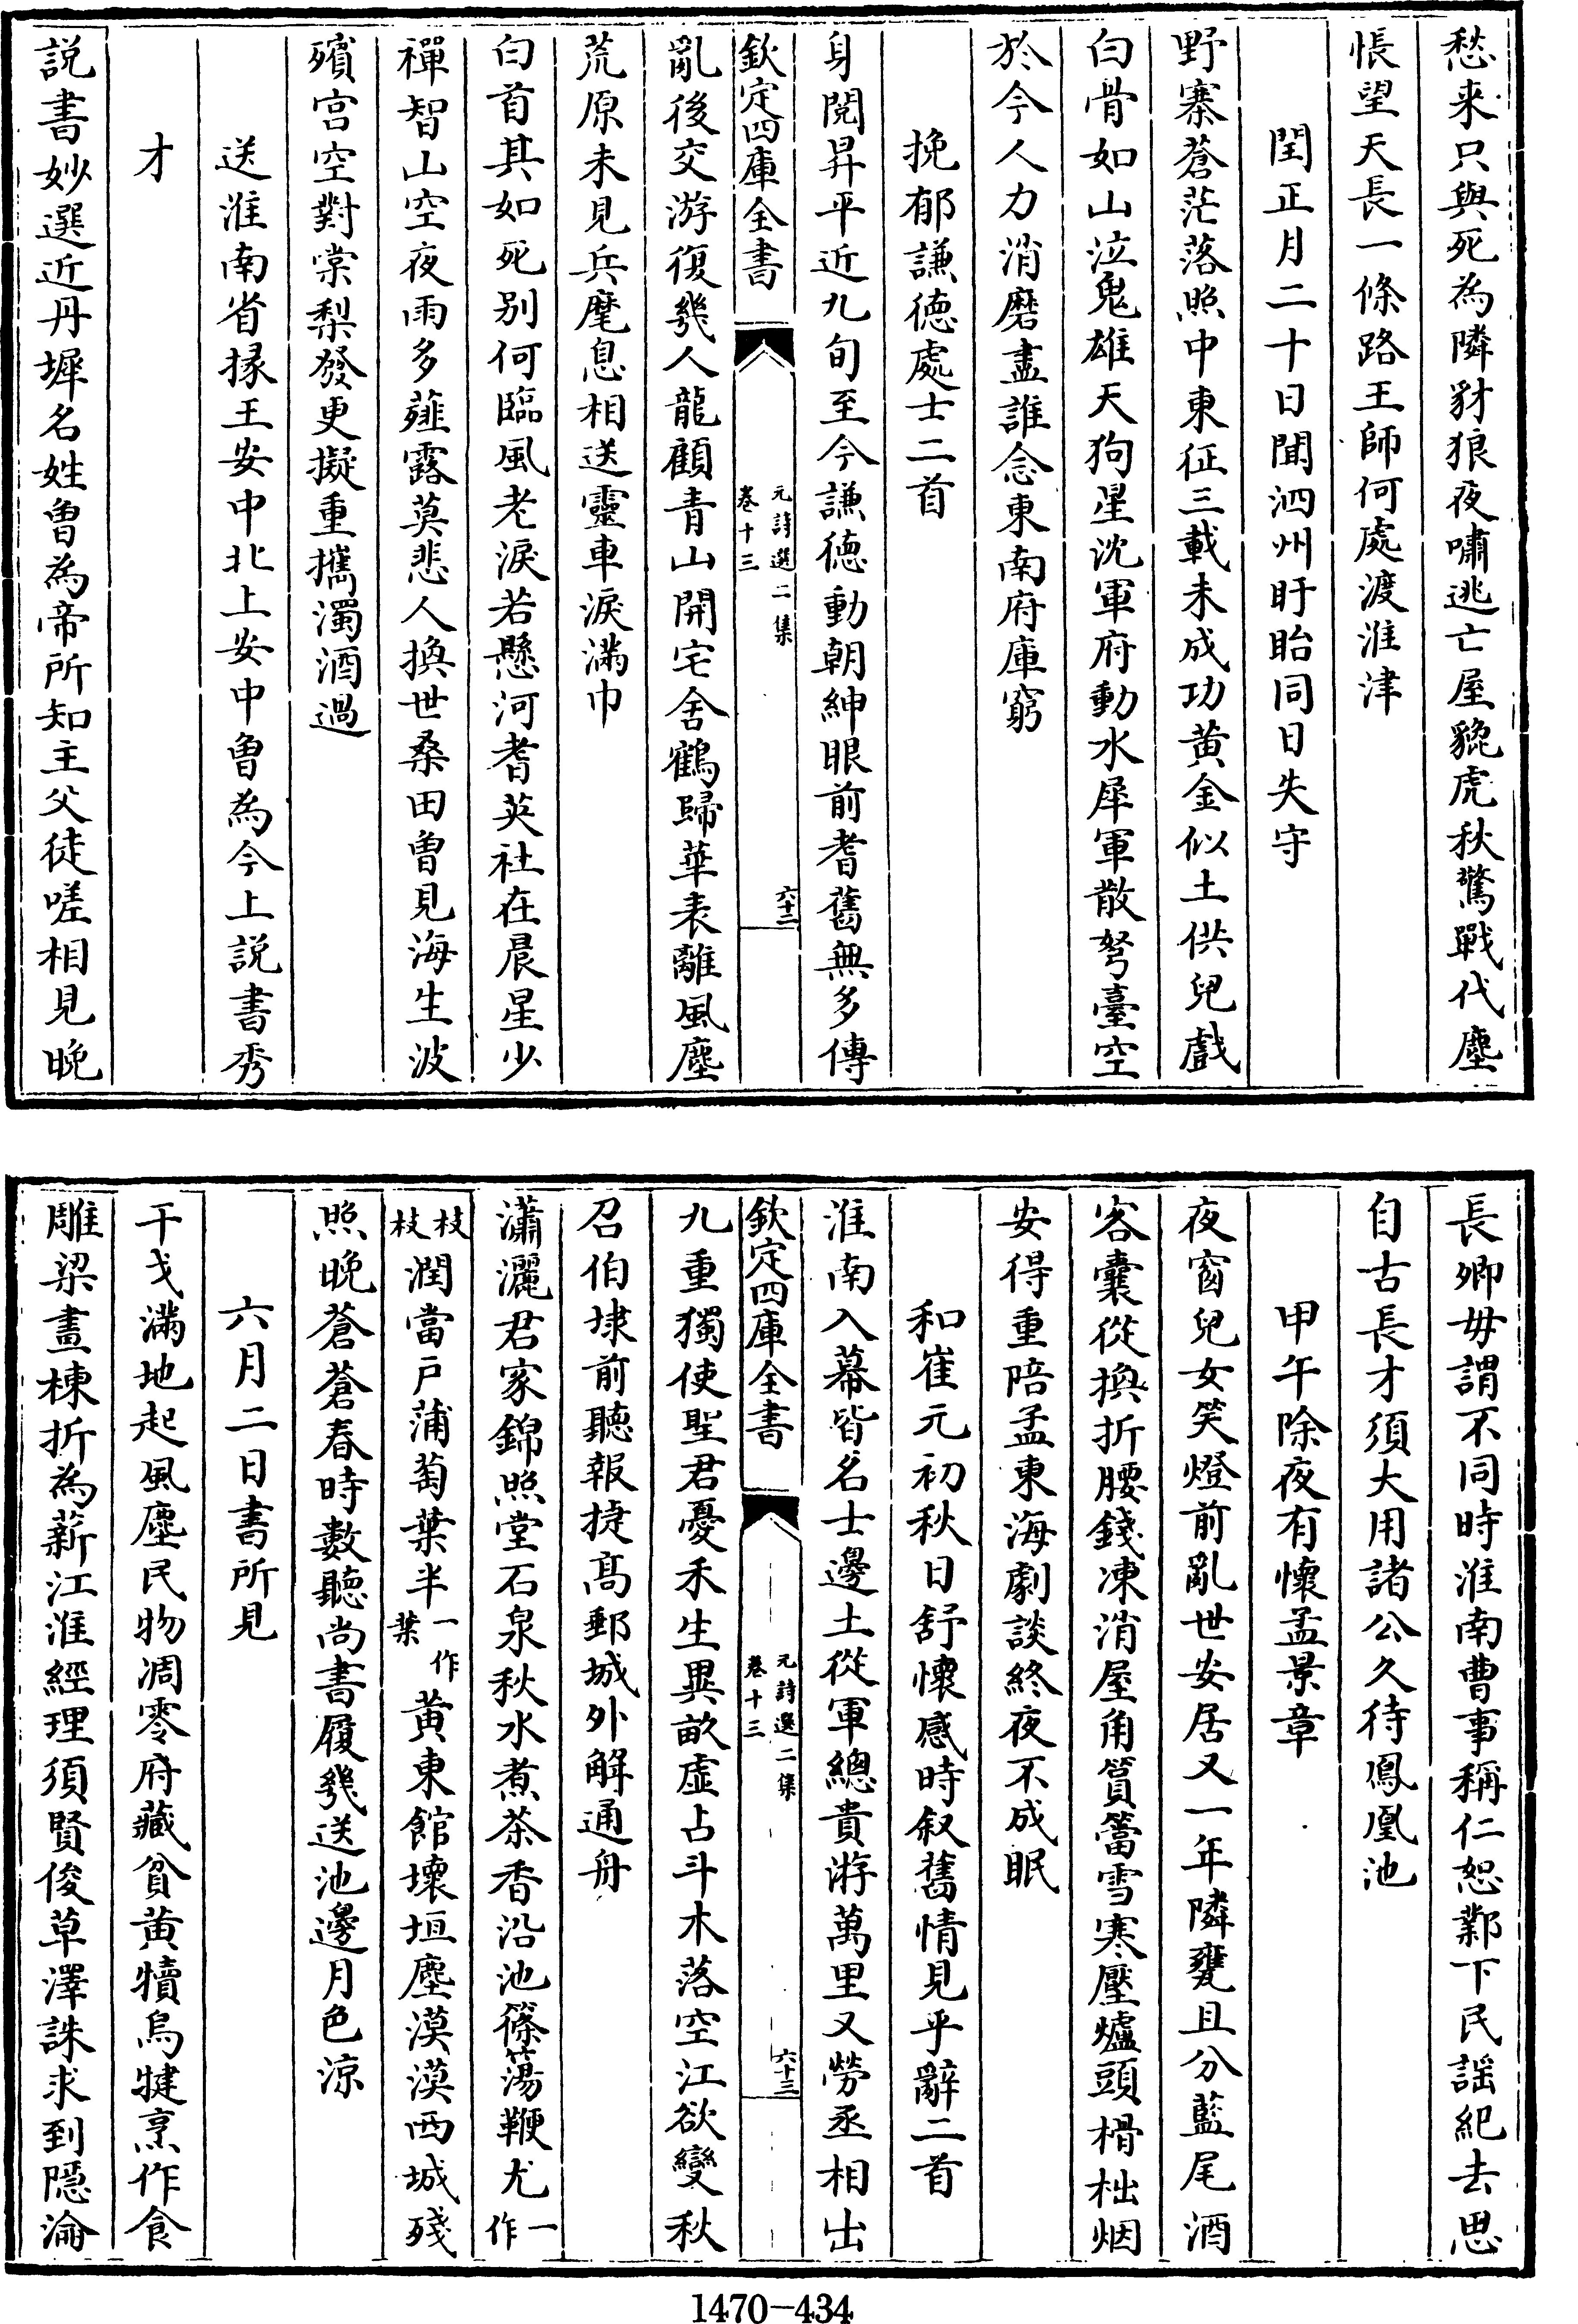 愁来只與死為隣豺狼夜嘯逃亡屋貔虎秋驚戰代塵
悵望天長一條路王師何處渡淮津
閏正月二十日聞泗州盱眙同日失守
野寨蒼茫落照中東征三載未成功黄金似土供兒戲
白骨如山泣鬼雄天狗星沈軍府動水犀軍散弩臺空
於今人力消磨盡誰念東南府庫窮
挽郁謙徳處士二首
身閲昇平近九旬至今謙徳動朝紳眼前耆舊無多傳
欽定四庫全書
元詩選二集
卷十三
六十二
亂後交游復幾人龍顧青山開宅舍鶴歸華表離風塵
荒原未見兵麾息相送靈車淚滿巾
白首其如死别何臨風老淚若懸河耆英社在晨星少
禪智山空夜雨多薤露莫悲人換世桑田曽見海生波
殯宫空對棠梨發更擬重攜濁酒過
送淮南省掾王安中北上安中曽為今上説書秀
才
説書妙選近丹墀名姓曽為帝所知主父徒嗟相見晚
長卿毋謂不同時淮南曹事稱仁恕鄴下民謡紀去思
自古長才須大用諸公久待鳳凰池
甲午除夜有懷孟景章
夜窗兒女笑燈前亂世安居又一年隣甕且分藍尾酒
客囊從換折腰錢凍消屋角篔簹雪寒壓爐頭榾柮烟
安得重陪孟東海劇談終夜不成眠
和崔元初秋日舒懷感時叙舊情見乎辭二首
淮南入幕皆名士邊土從軍總貴游萬里又勞丞相出
欽定四庫全書
元詩選二集
卷十三
六十三
九重獨使聖君憂禾生異畝虚占斗木落空江欲變秋
召伯埭前聽報捷髙郵城外解通舟
瀟灑君家錦照堂石泉秋水煮茶香沿池篠簜鞭尤一作
枝枝潤當户蒲萄葉半一作葉黄東館壞垣塵漠漠西城殘
照晚蒼蒼春時數聽尚書履幾送池邊月色涼
六月二日書所見
干戈滿地起風塵民物凋零府藏貧黄犢烏犍烹作食
雕梁畫棟折為薪江淮經理須賢俊草澤誅求到隱淪
1470-434